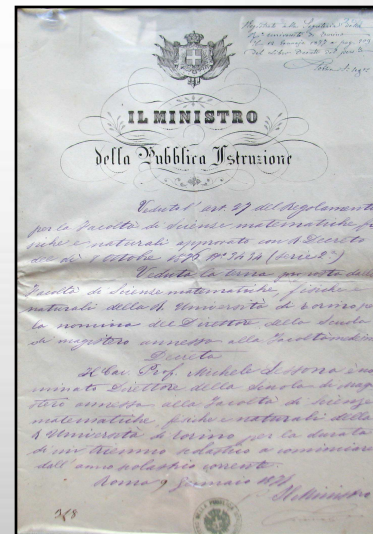 Registrato alla Segreteria della
Università di Torino
IL MINISTRO
della Pubblica Istruzione
Veduto l'art. 27 del Regolamento
per la Facoltà di Scienze matematiche fi
siche e naturali approvato con R Decreto
del dì 8 Ottobre 1876 N° 3434 (serie 2a)
Veduta la terna proposta dalla
Facoltà di Scienze matematiche, fisiche e
naturali della R. Università di Torino per
la nomina del Direttore della Scuola
di magistero annessa alla Facoltà medesima
Decreta
Il Cav. Prof. Michele Lessona è no
minato Direttore della Scuola di Magi
stero annessa alla Facoltà di Scienze
matematiche fisiche e naturali della
R Università di Torino per la durata
di un triennio scolastico a cominciare
dall'anno scolastico corrente.
Roma 9 Gennaio
Il Ministro